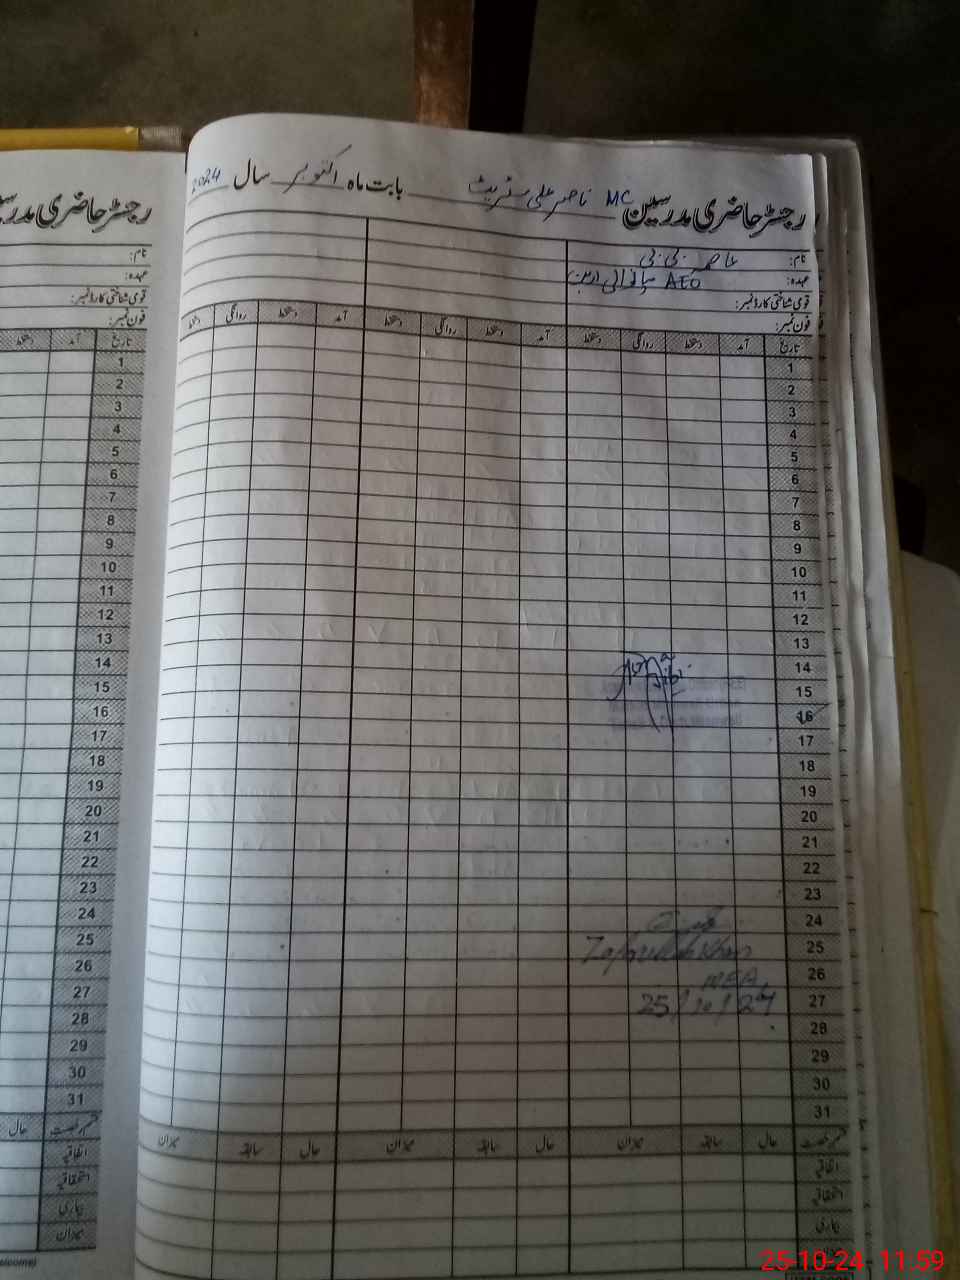 رجسٹر حاضری مدرسین MC ناصر علی سٹریٹ بابت ماہ اکتوبر سال 2024
نام: عاصمہ بی بی
عہدہ: AEO
قومی شناختی کارڈ نمبر:
فون نمبر:
تاریخ آمد دستخط روانگی دستخط آمد دستخط روانگی دستخط آمد دستخط روانگی دستخط
1
2
3
4
5
6
7
8
9
10
11
12
13
14
15
16
17
18
19
20
21
22
23
24
25
Zafarullah Khan
26
MEA
27
25/10/24
28
29
30
31
قسم رخصت حال سابقہ میزان حال سابقہ میزان حال سابقہ میزان
اتفاقیہ
استحقاقیہ
بیماری
رجسٹر حاضری
نام:
عہدہ:
قومی شناختی کارڈ نمبر:
فون نمبر:
تاریخ آمد دستخط
1
2
3
4
5
6
7
8
9
10
11
12
13
14
15
16
17
18
19
20
21
22
23
24
25
26
27
28
29
30
31
قسم رخصت حال
اتفاقیہ
استحقاقیہ
بیماری
میزان
25-10-24 11:59